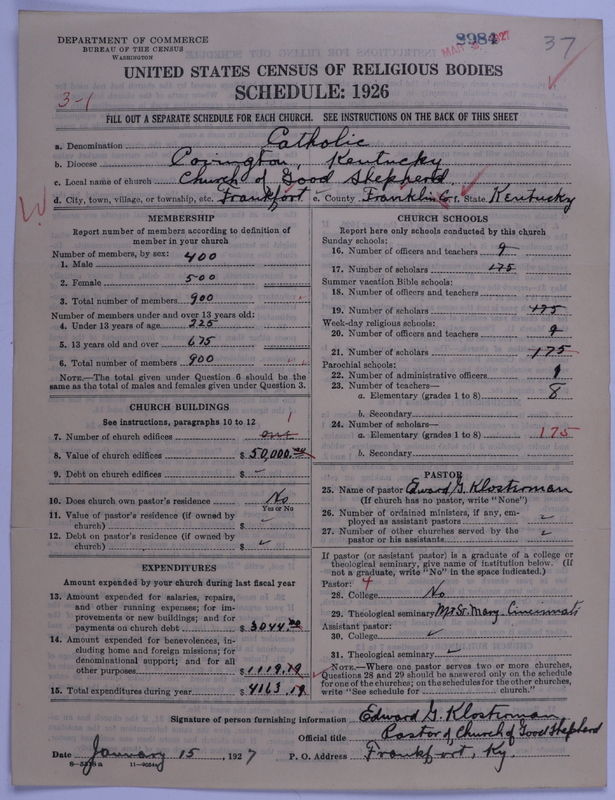 DEPARTMENT OF COMMERCE
BUREAU OF THE CENSUS
WASHINGTON
8984
37
UNITED STATES CENSUS OF RELIGIOUS BODIES
SCHEDULE: 1926
3-1
FILL OUT A SEPARATE SCHEDULE FOR EACH CHURCH. SEE INSTRUCTIONS ON THE BACK OF THIS SHEET
a. Denomination Catholic
b. Diocese Covington, Kentucky
c. Local name of church Church of Good Shepherd.
d. City, town, village, or township, etc. Frankfort e. County Franklin Co. f. State Kentucky
MEMBERSHIP
Report number of members according to definition of
member in your church
Number of members, by sex:
1. Male 400
2. Female 500
3. Total number of members 900
Number of members under and over 13 years old:
4. Under 13 years of age 225
5. 13 years old and over 675
6. Total number of members 900
NOTE.—The total given under Question 6 should be the
same as the total of males and females given under Question 3.
CHURCH BUILDINGS
See instructions, paragraphs 10 to 12
1
7. Number of church edifices one
8. Value of church edifices $ 50,000.00
9. Debt on church edifices $ -
10. Does church own pastor's residence No
Yes or No
11. Value of pastor's residence (if owned by
church) $
12. Debt on pastor's residence (if owned by
church) $
EXPENDITURES
Amount expended by your church during last fiscal year
13. Amount expended for salaries, repairs,
and other running expenses; for im-
provements or new buildings; and for
payments on church debt $ 3044.00
14. Amount expended for benevolences, in-
cluding home and foreign missions; for
denominational support; and for all
other purposes $ 1119.19
15. Total expenditures during year $ 4163.19
CHURCH SCHOOLS
Report here only schools conducted by this church
Sunday schools:
16. Number of officers and teachers 9
17. Number of scholars 175
Summer vacation Bible schools:
18. Number of officers and teachers
19. Number of scholars 175
Week-day religious schools:
20. Number of officers and teachers 9
21. Number of scholars 175
Parochial schools:
22. Number of administrative officers 1
23. Number of teachers—
a. Elementary (grades 1 to 8) 8
b. Secondary
24. Number of scholars—
a. Elementary (grades 1 to 8) 175
b. Secondary
PASTOR
25. Name of pastor Edward G. Klosterman
(If church has no pastor, write "None")
26. Number of ordained ministers, if any, em-
ployed as assistant pastors
27. Number of other churches served by the
pastor or his assistants
If pastor (or assistant pastor) is a graduate of a college or
theological seminary, give name of institution below. (If
not a graduate, write "No" in the space indicated.)
Pastor: 4
28. College No
29. Theological seminary Mt. St. Mary, Cincinnati
Assistant pastor:
30. College
31. Theological seminary
NOTE.—Where one pastor serves two or more churches,
Questions 28 and 29 should be answered only on the schedule
for one of the churches; on the schedules for the other churches,
write "See schedule for church."
Signature of person furnishing information Edward G. Klosterman
Official title Pastor of Church of Good Shepherd
Date January 15, 1927 P. O. Address Frankfort, Ky.